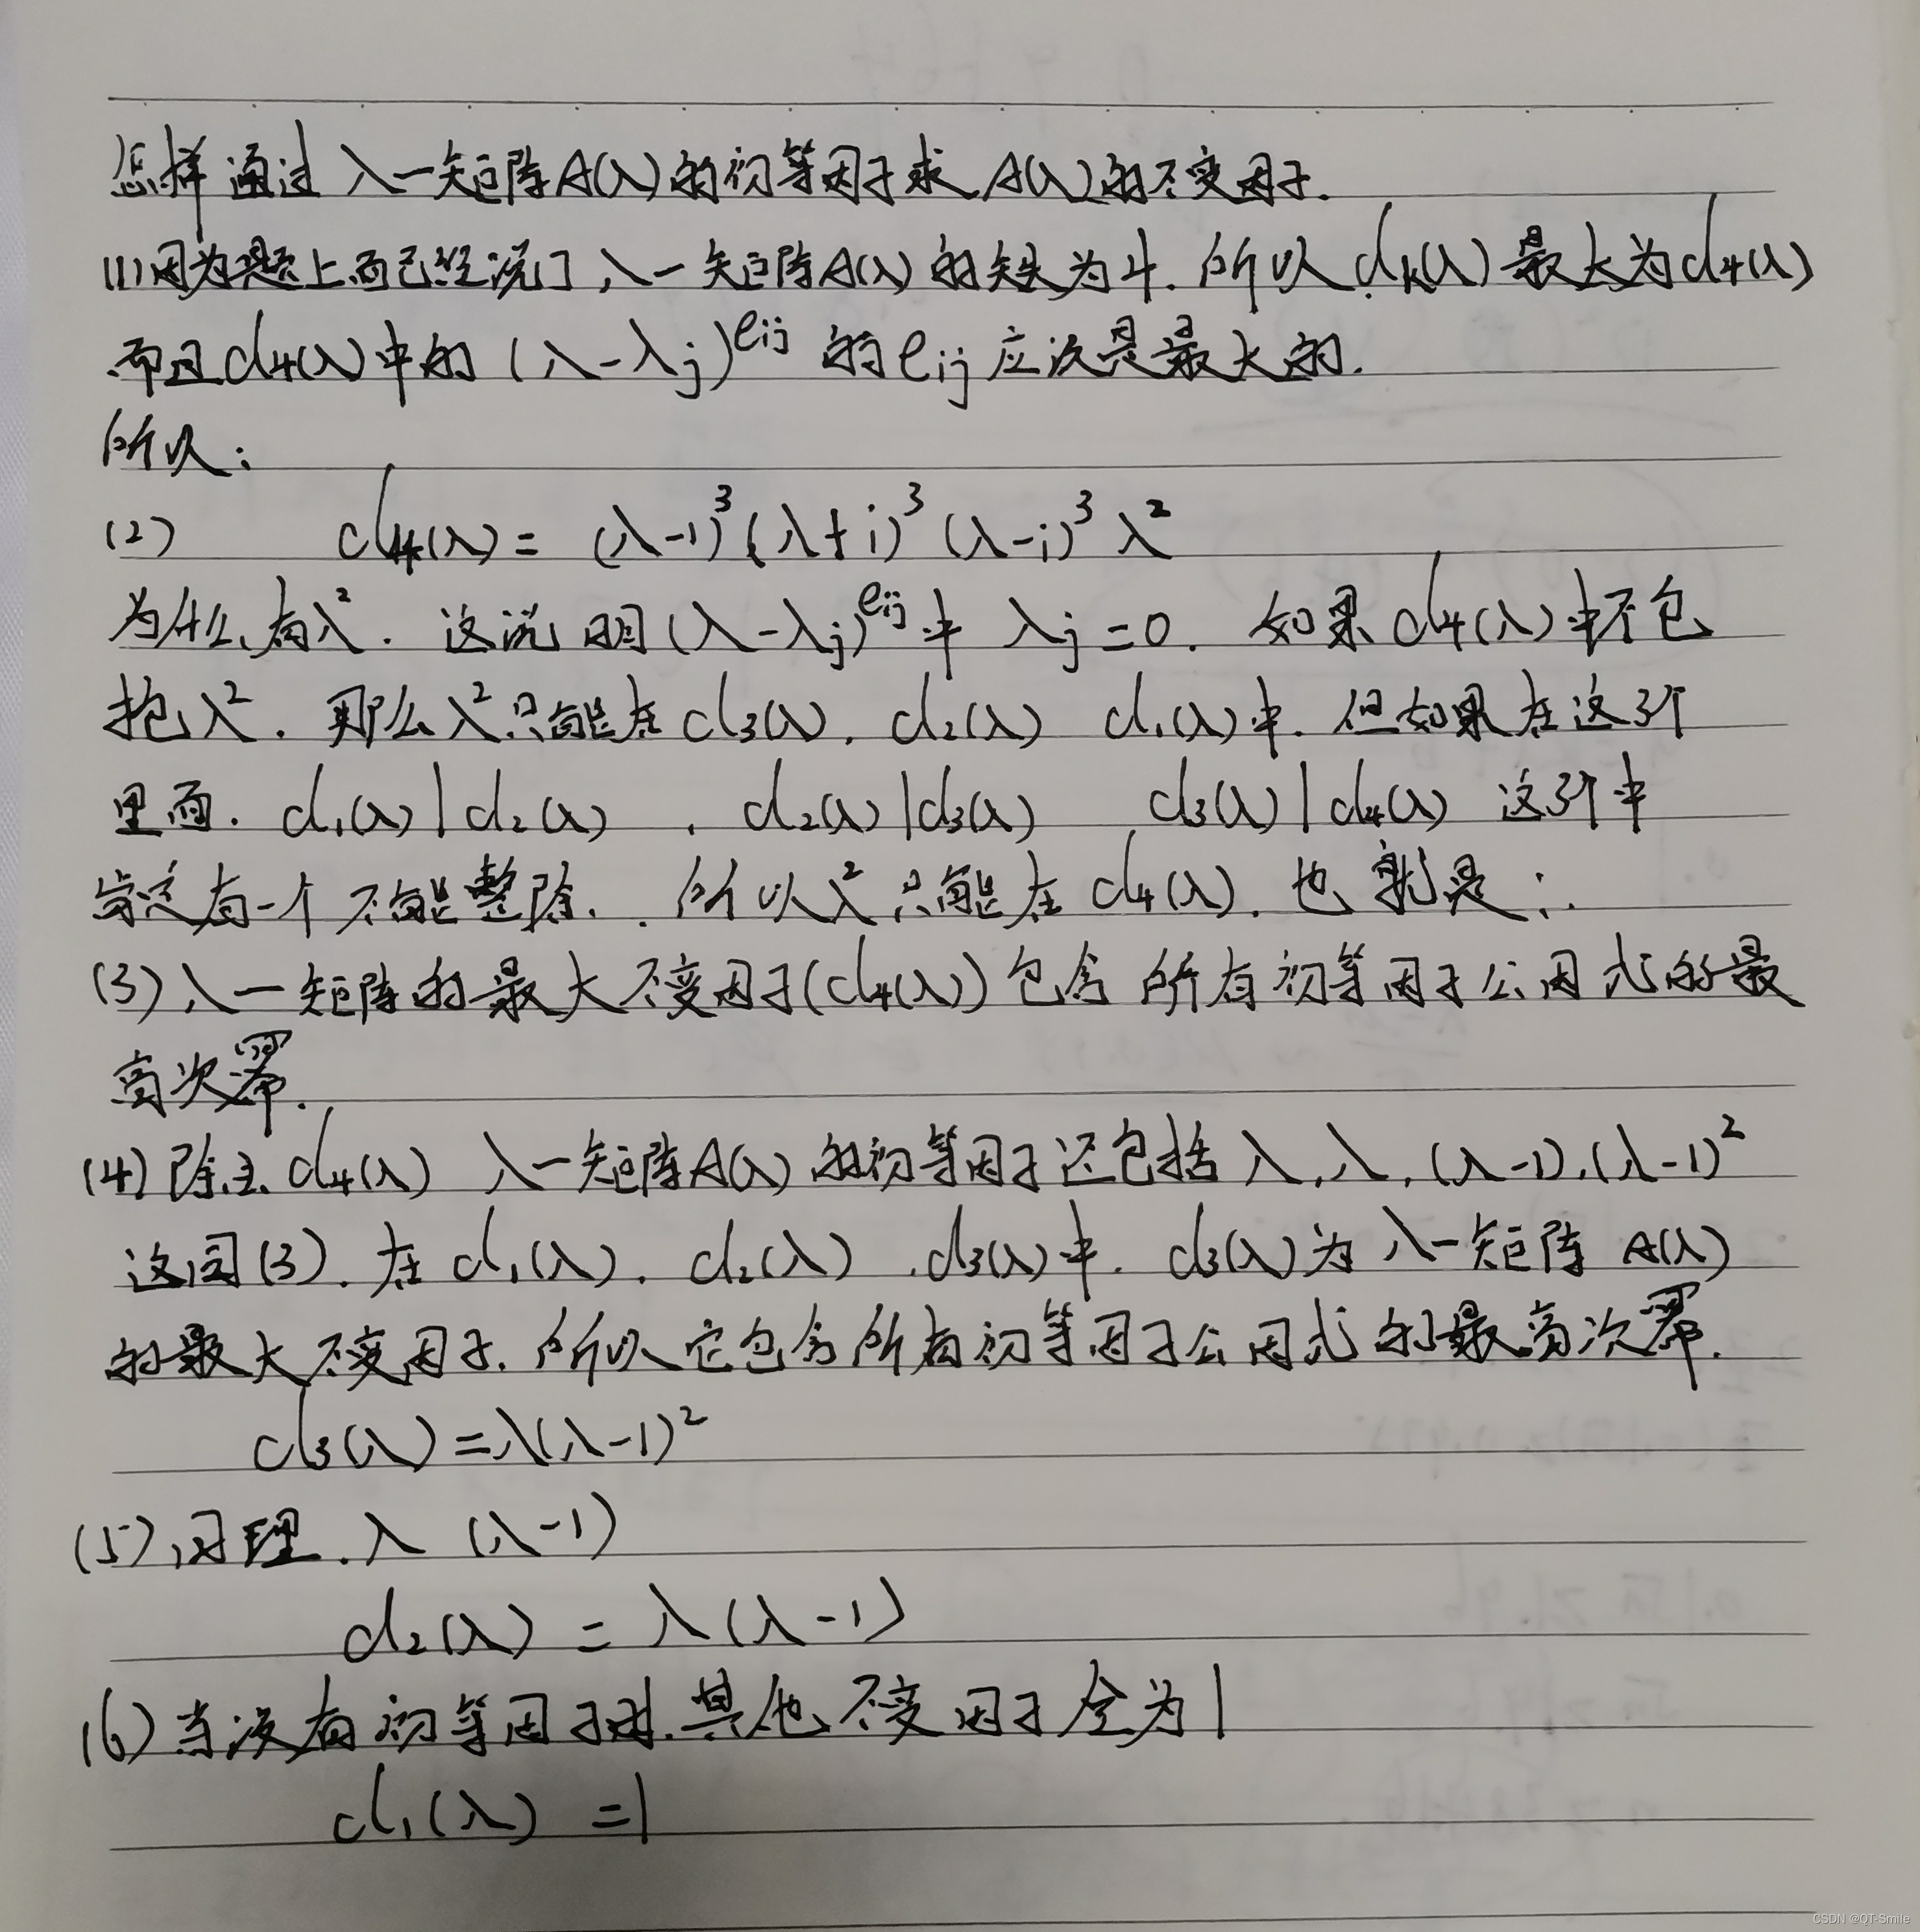 怎样通过 λ-矩阵A(λ)的初等因子求A(λ)的不变因子.
(1)因为题上面已经说了,λ-矩阵A(λ)的秩为4.所以dₖ(λ)最大为d₄(λ)
而且d₄(λ)中的 (λ-λⱼ)^eij 的eij应该是最大的.
所以:
(2) d₄(λ)= (λ-1)³(λ+i)³(λ-i)³λ²
为什么有λ². 这说明(λ-λⱼ)^eij中 λⱼ=0. 如果d₄(λ)中不包
抱λ². 那么λ²只能在d₃(λ), d₂(λ) d₁(λ)中.但如果在这3个
里面. d₁(λ)|d₂(λ) , d₂(λ)|d₃(λ) d₃(λ)|d₄(λ) 这3个中
肯定有一个不能整除. 所以λ²只能在d₄(λ). 也就是:
(3)λ-矩阵的最大不变因子(d₄(λ))包含所有初等因子公因式的最
高次幂.
(4)除去d₄(λ) λ-矩阵A(λ)的初等因子还包括λ,λ,(λ-1),(λ-1)²
这同(3).在d₁(λ). d₂(λ) .d₃(λ)中. d₃(λ)为λ-矩阵 A(λ)
的最大不变因子.所以它包含所有初等因子公因式的最高次幂.
d₃(λ)=λ(λ-1)²
(5)同理.λ (λ-1)
d₂(λ) = λ(λ-1)
(6)当没有初等因子时.其他不变因子全为1
d₁(λ) =1
CSDN @QT-Smile